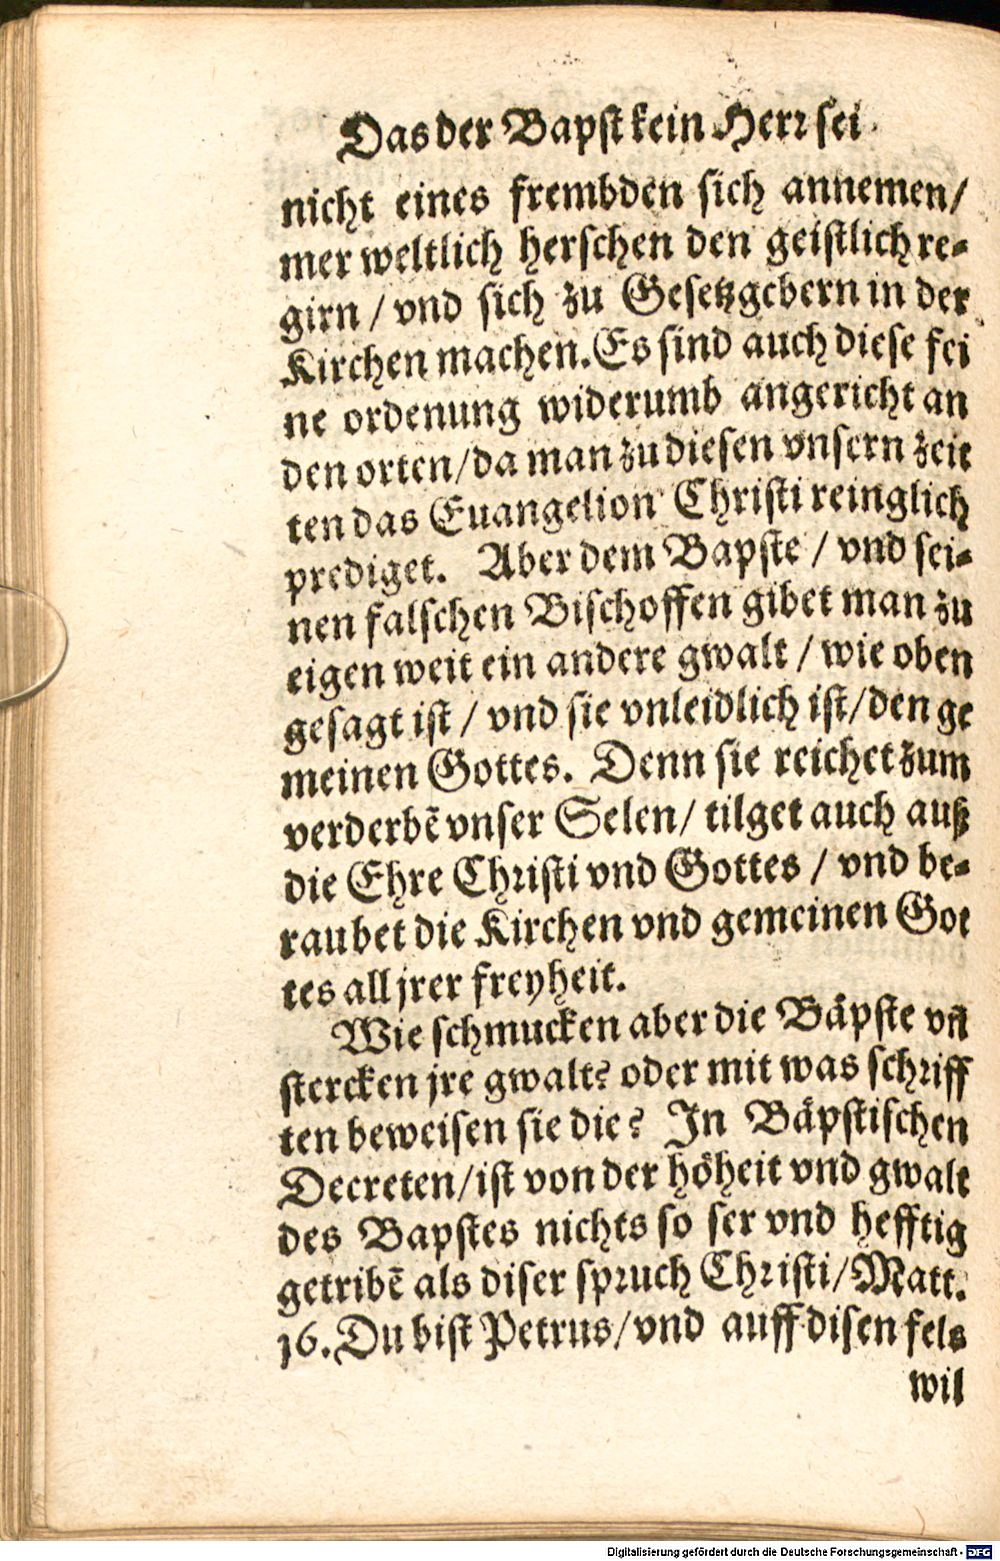 Das der Bapst kein Herr sei
nicht eines frembden sich annemen/
mer weltlich herschen den geistlich re⸗
girn / vnd sich zu Gesetzgebern in der
Kirchen machen. Es sind auch diese fei
ne ordenung widerumb angericht an
den orten/da man zu diesen vnsern zeit
ten das Euangelion Christi reinglich
prediget. Aber dem Bapste / vnd sei⸗
nen falschen Bischoffen gibet man zu
eigen weit ein andere gwalt / wie oben
gesagt ist / vnd sie vnleidlich ist/den ge
meinen Gottes. Denn sie reichet zum
verderbē vnser Selen/ tilget auch auß
die Ehre Christi vnd Gottes / vnd be⸗
raubet die Kirchen vnd gemeinen Got
tes all jrer freyheit.
Wie schmucken aber die Bäpste vñ
stercken jre gwalt? oder mit was schriff
ten beweisen sie die? In Bäpstischen
Decreten/ist von der höheit vnd gwalt
des Bapstes nichts so ser vnd hefftig
getribē als diser spruch Christi/Matt.
16. Du bist Petrus/vnd auff disen fels
wil
Digitalisierung gefördert durch die Deutsche Forschungsgemeinschaft - DFG